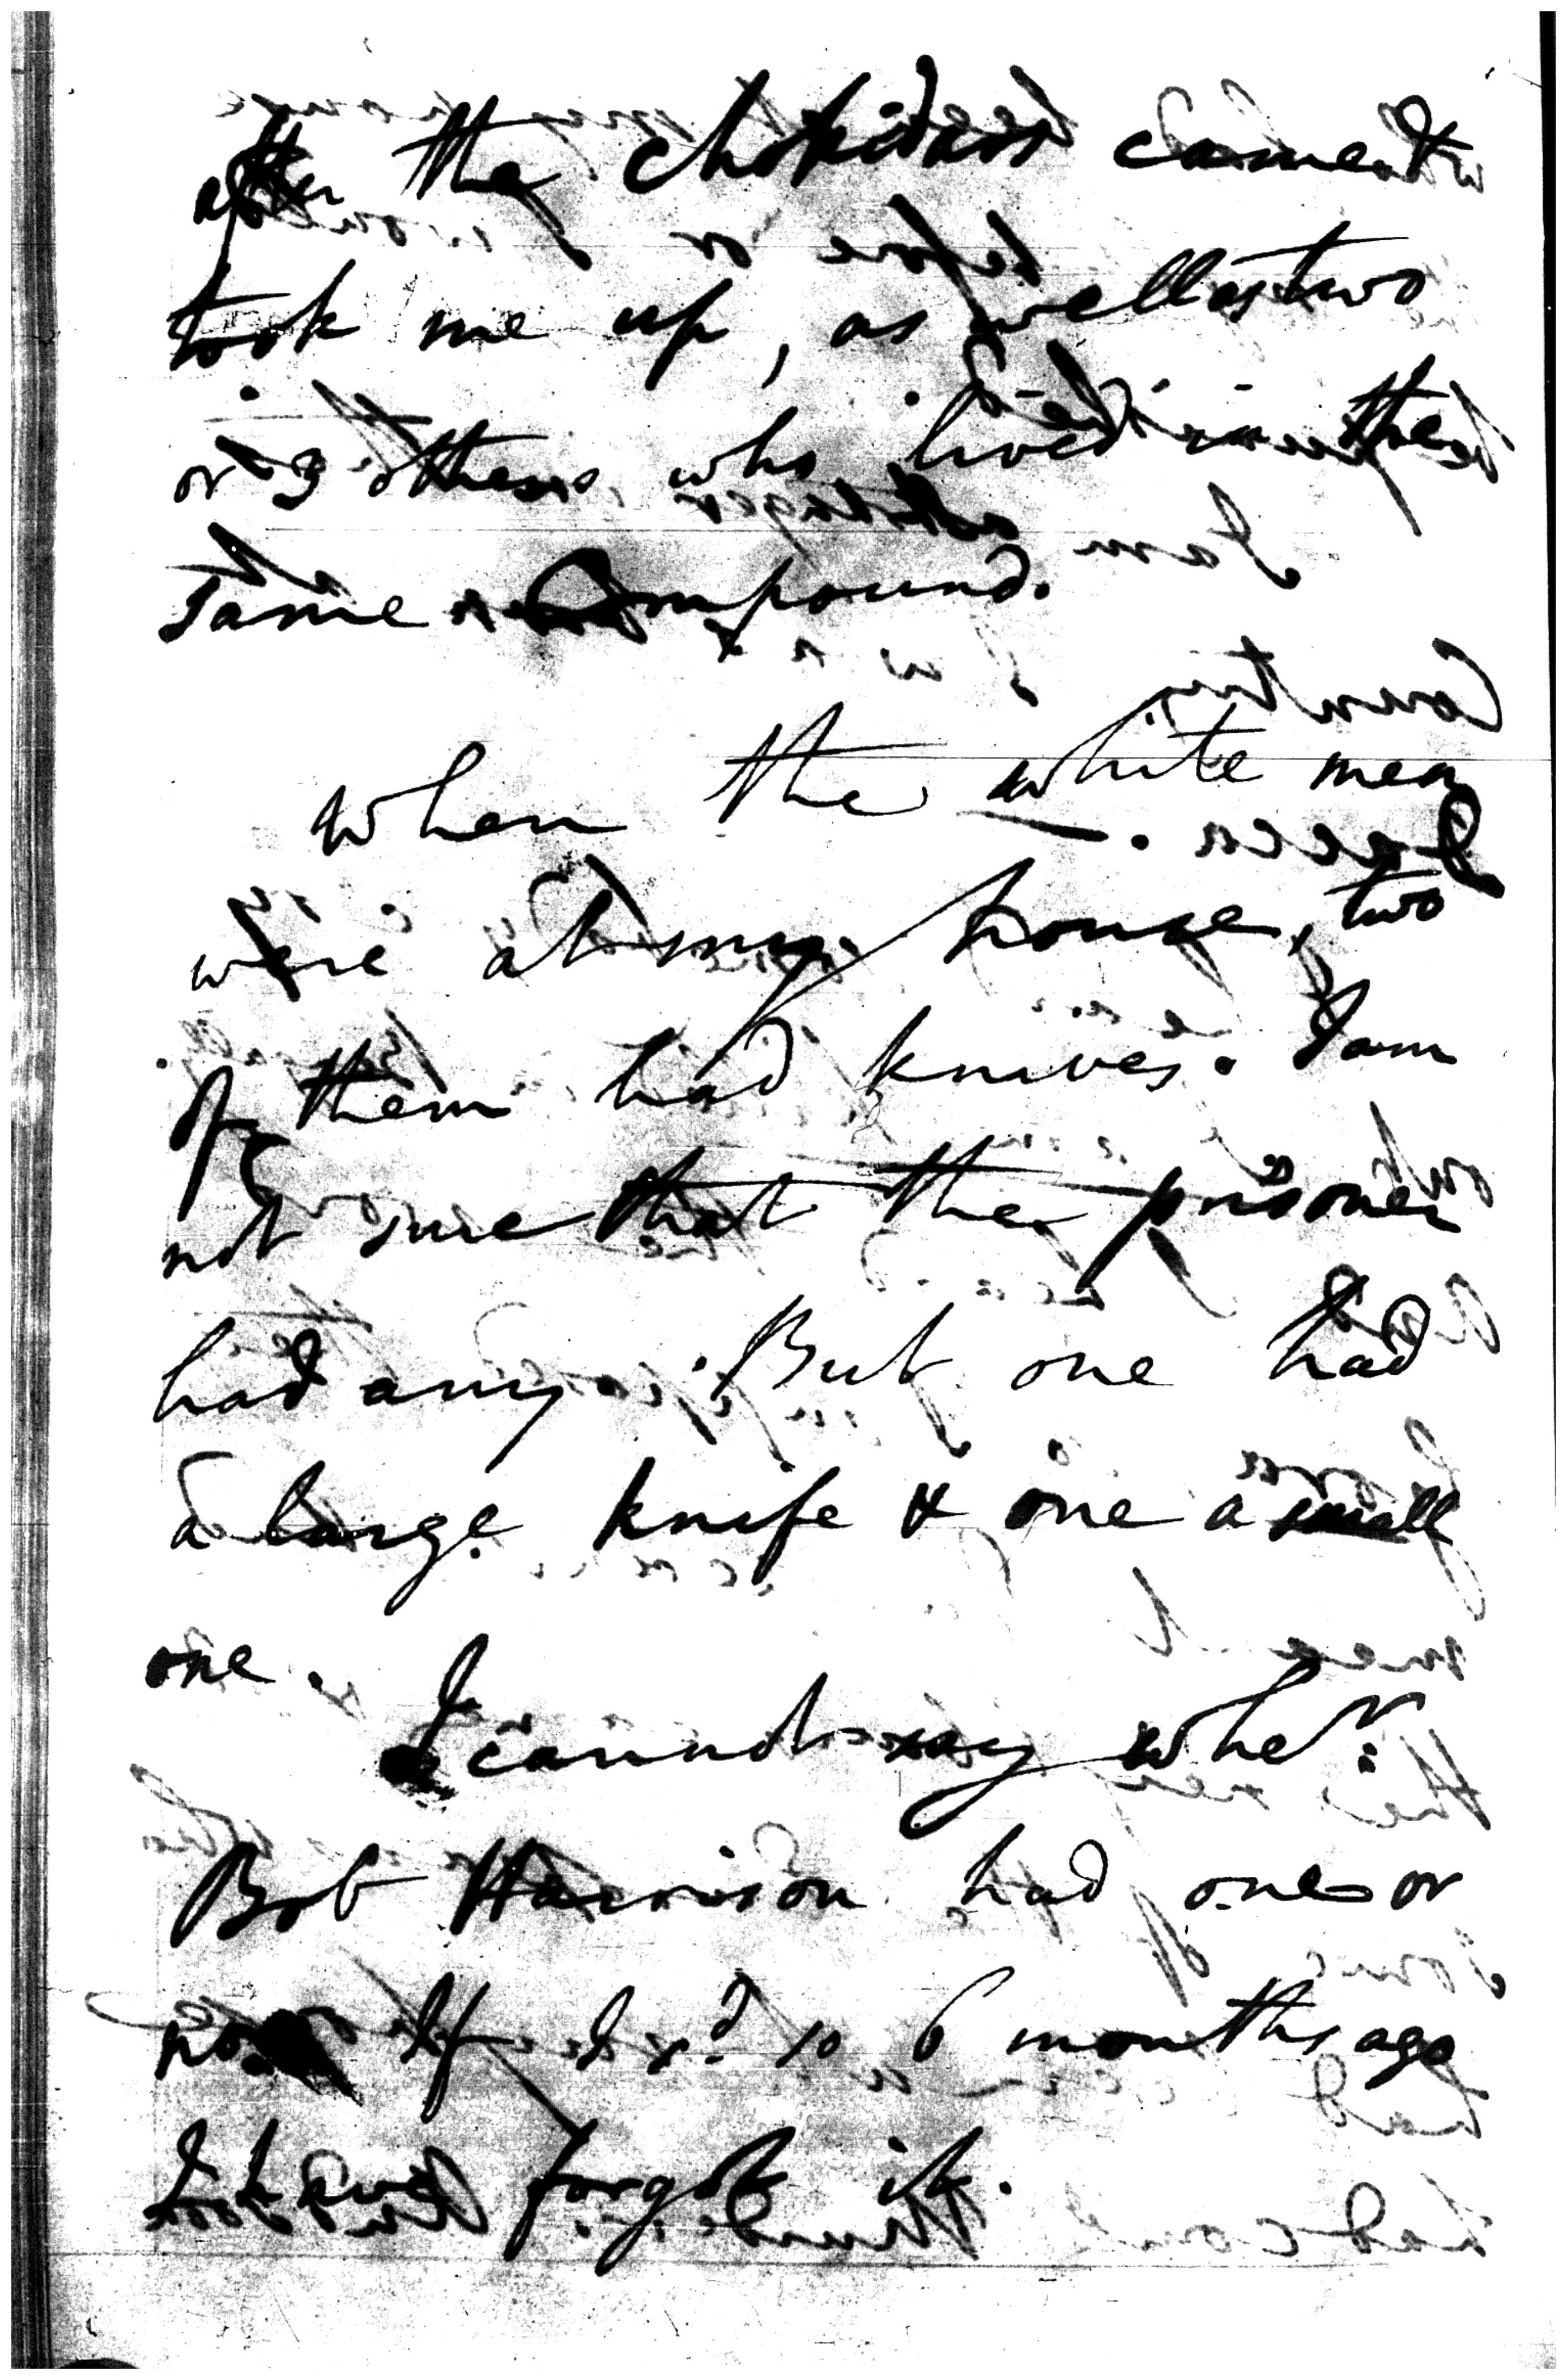 after the chokidars came &
took me up, as well as two
or 3 others who lived in the
same compound.
When the white men
were at my house, two
of them had knives. I am
not sure that the prisoner
had any. But one had
a large knife & one a small
one.
I cannot say whe^r:
Bob Harrison had one or
no. If I s^d so 6 months ago
I have forgot it.